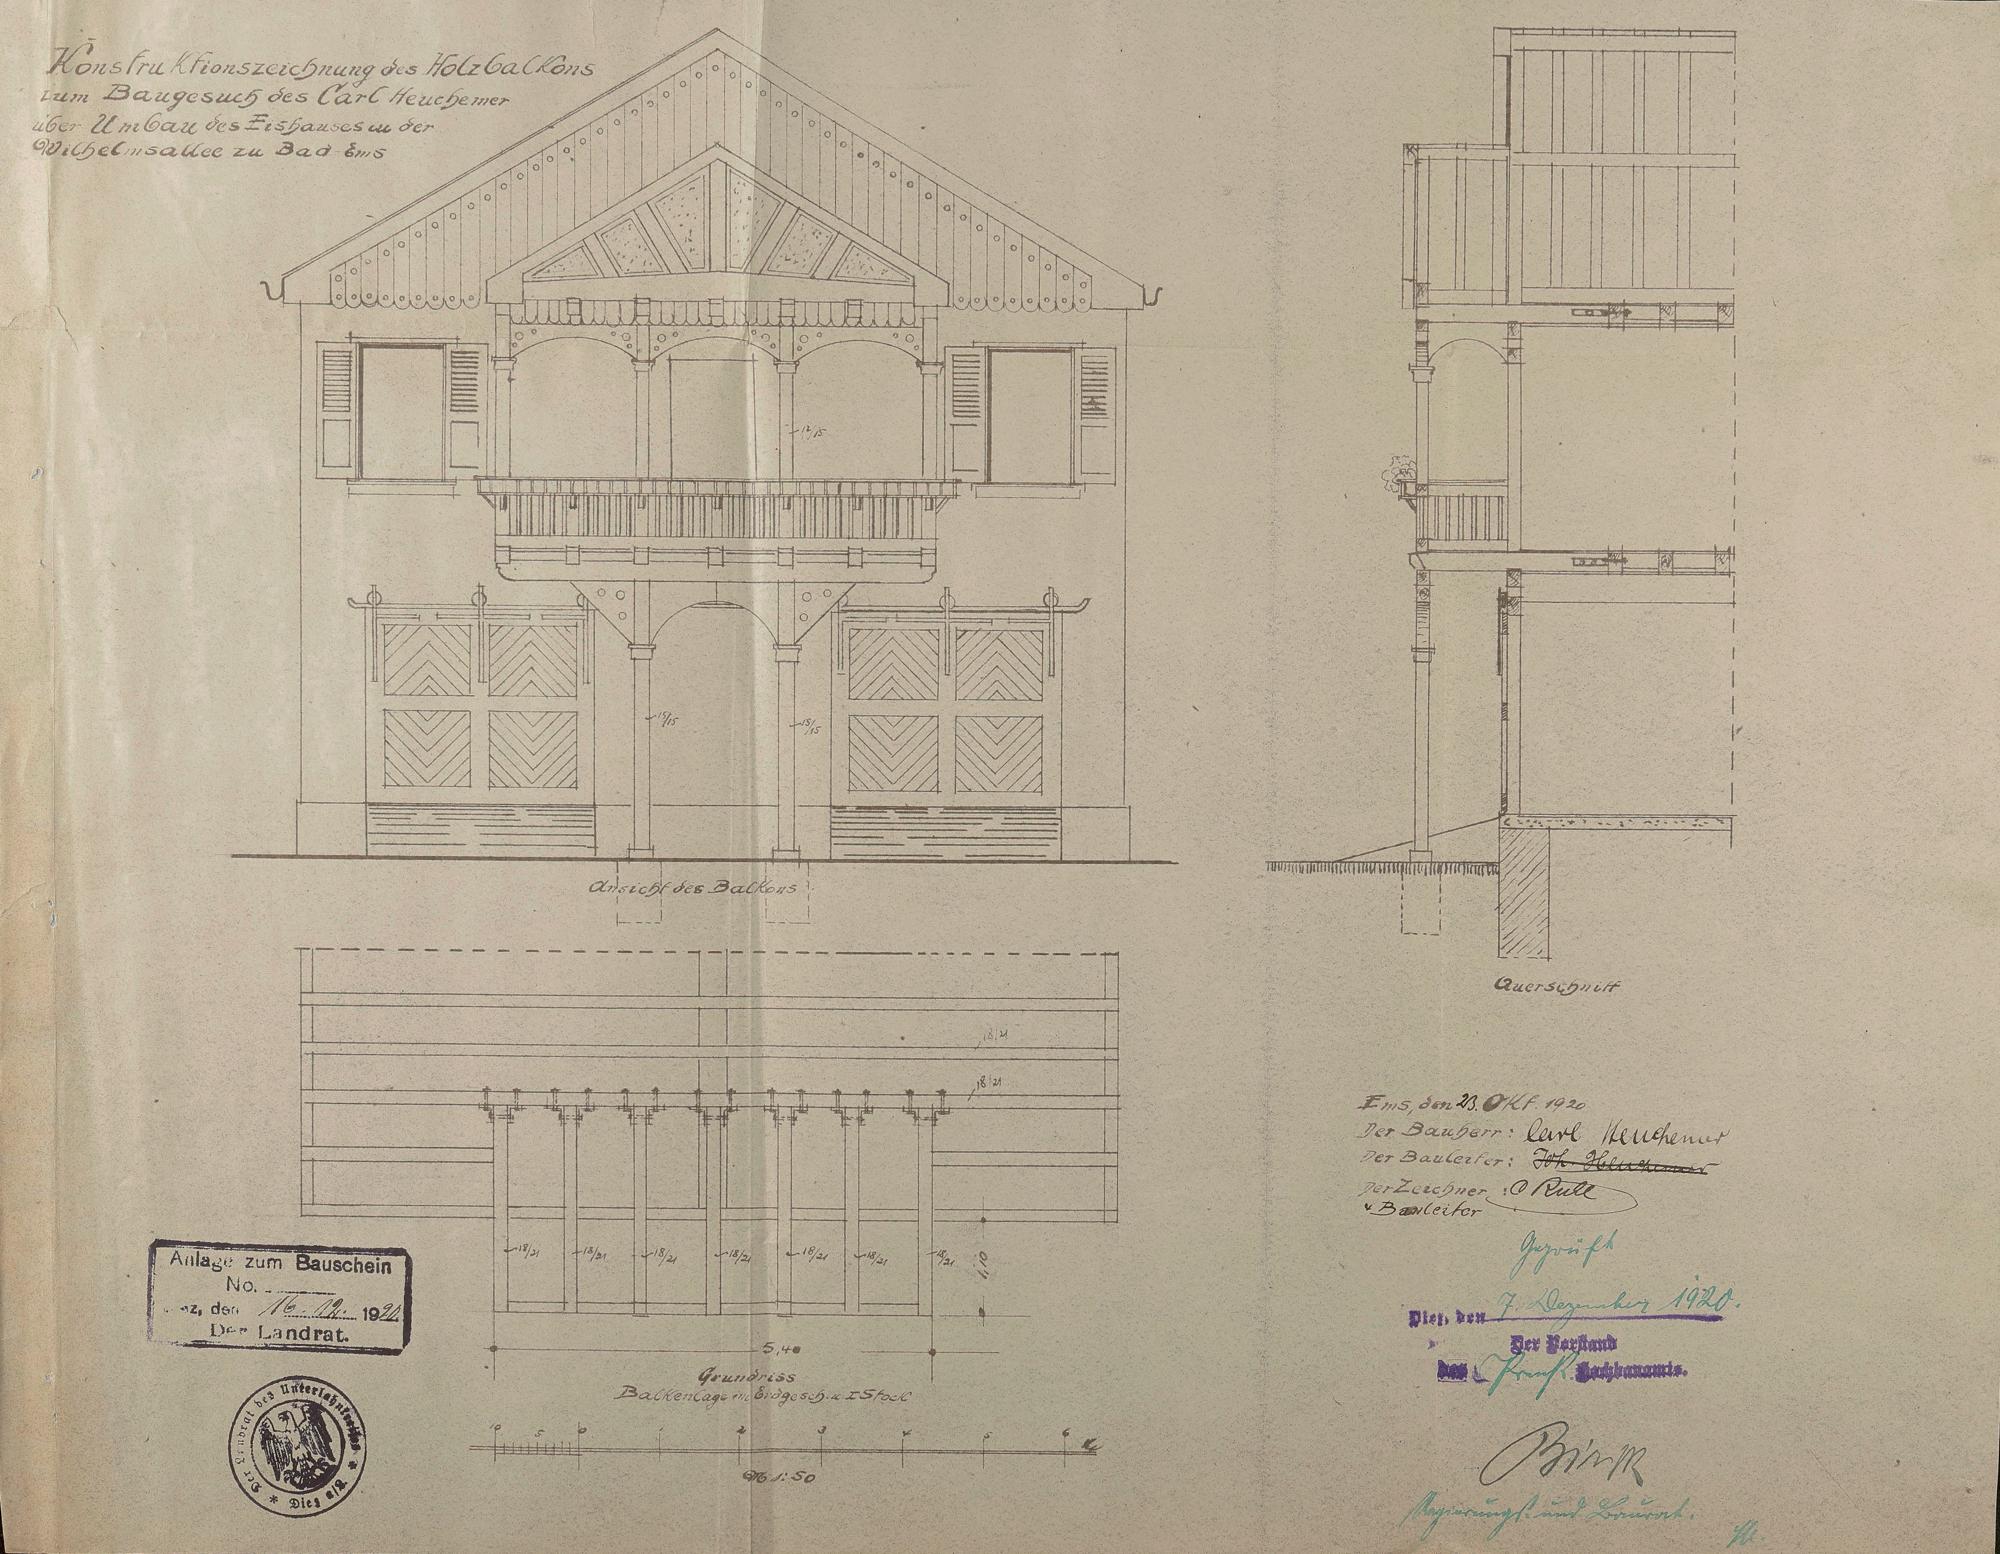 Konstruktionszeichnung des Holzbalkons
zum Baugesuch des Carl Heuchemer
über Umbau des Eishauses in der
Wilhelmsallee zu Bad Ems
12/15
15/15
15/15
Ansicht des Balkons
Querschnitt
18/21
18/21
18/21
18/21
18/21
18/21
18/21
18/21
18/21
1,10
5,40
Grundriss
Balkenlage im Erdgesch. u. I Stock
10 5 0 1 2 3 4 5 6
M 1:50
Ems, den 23. Okt. 1920
Der Bauherr: Carl Heuchemer
Der Bauleiter: Joh. Heuchemer
Der Zeichner: O Rull
u Bauleiter
Geprüft
Diez, den 7. Dezember 1920.
Der Vorstand
des Preuß. Hochbauamts.
Regierungs- und Baurat.
Anlage zum Bauschein
No.
den 16. 12. 1920.
Der Landrat.
Der Landrat des Unterlahnkreises * Diez a/L. *